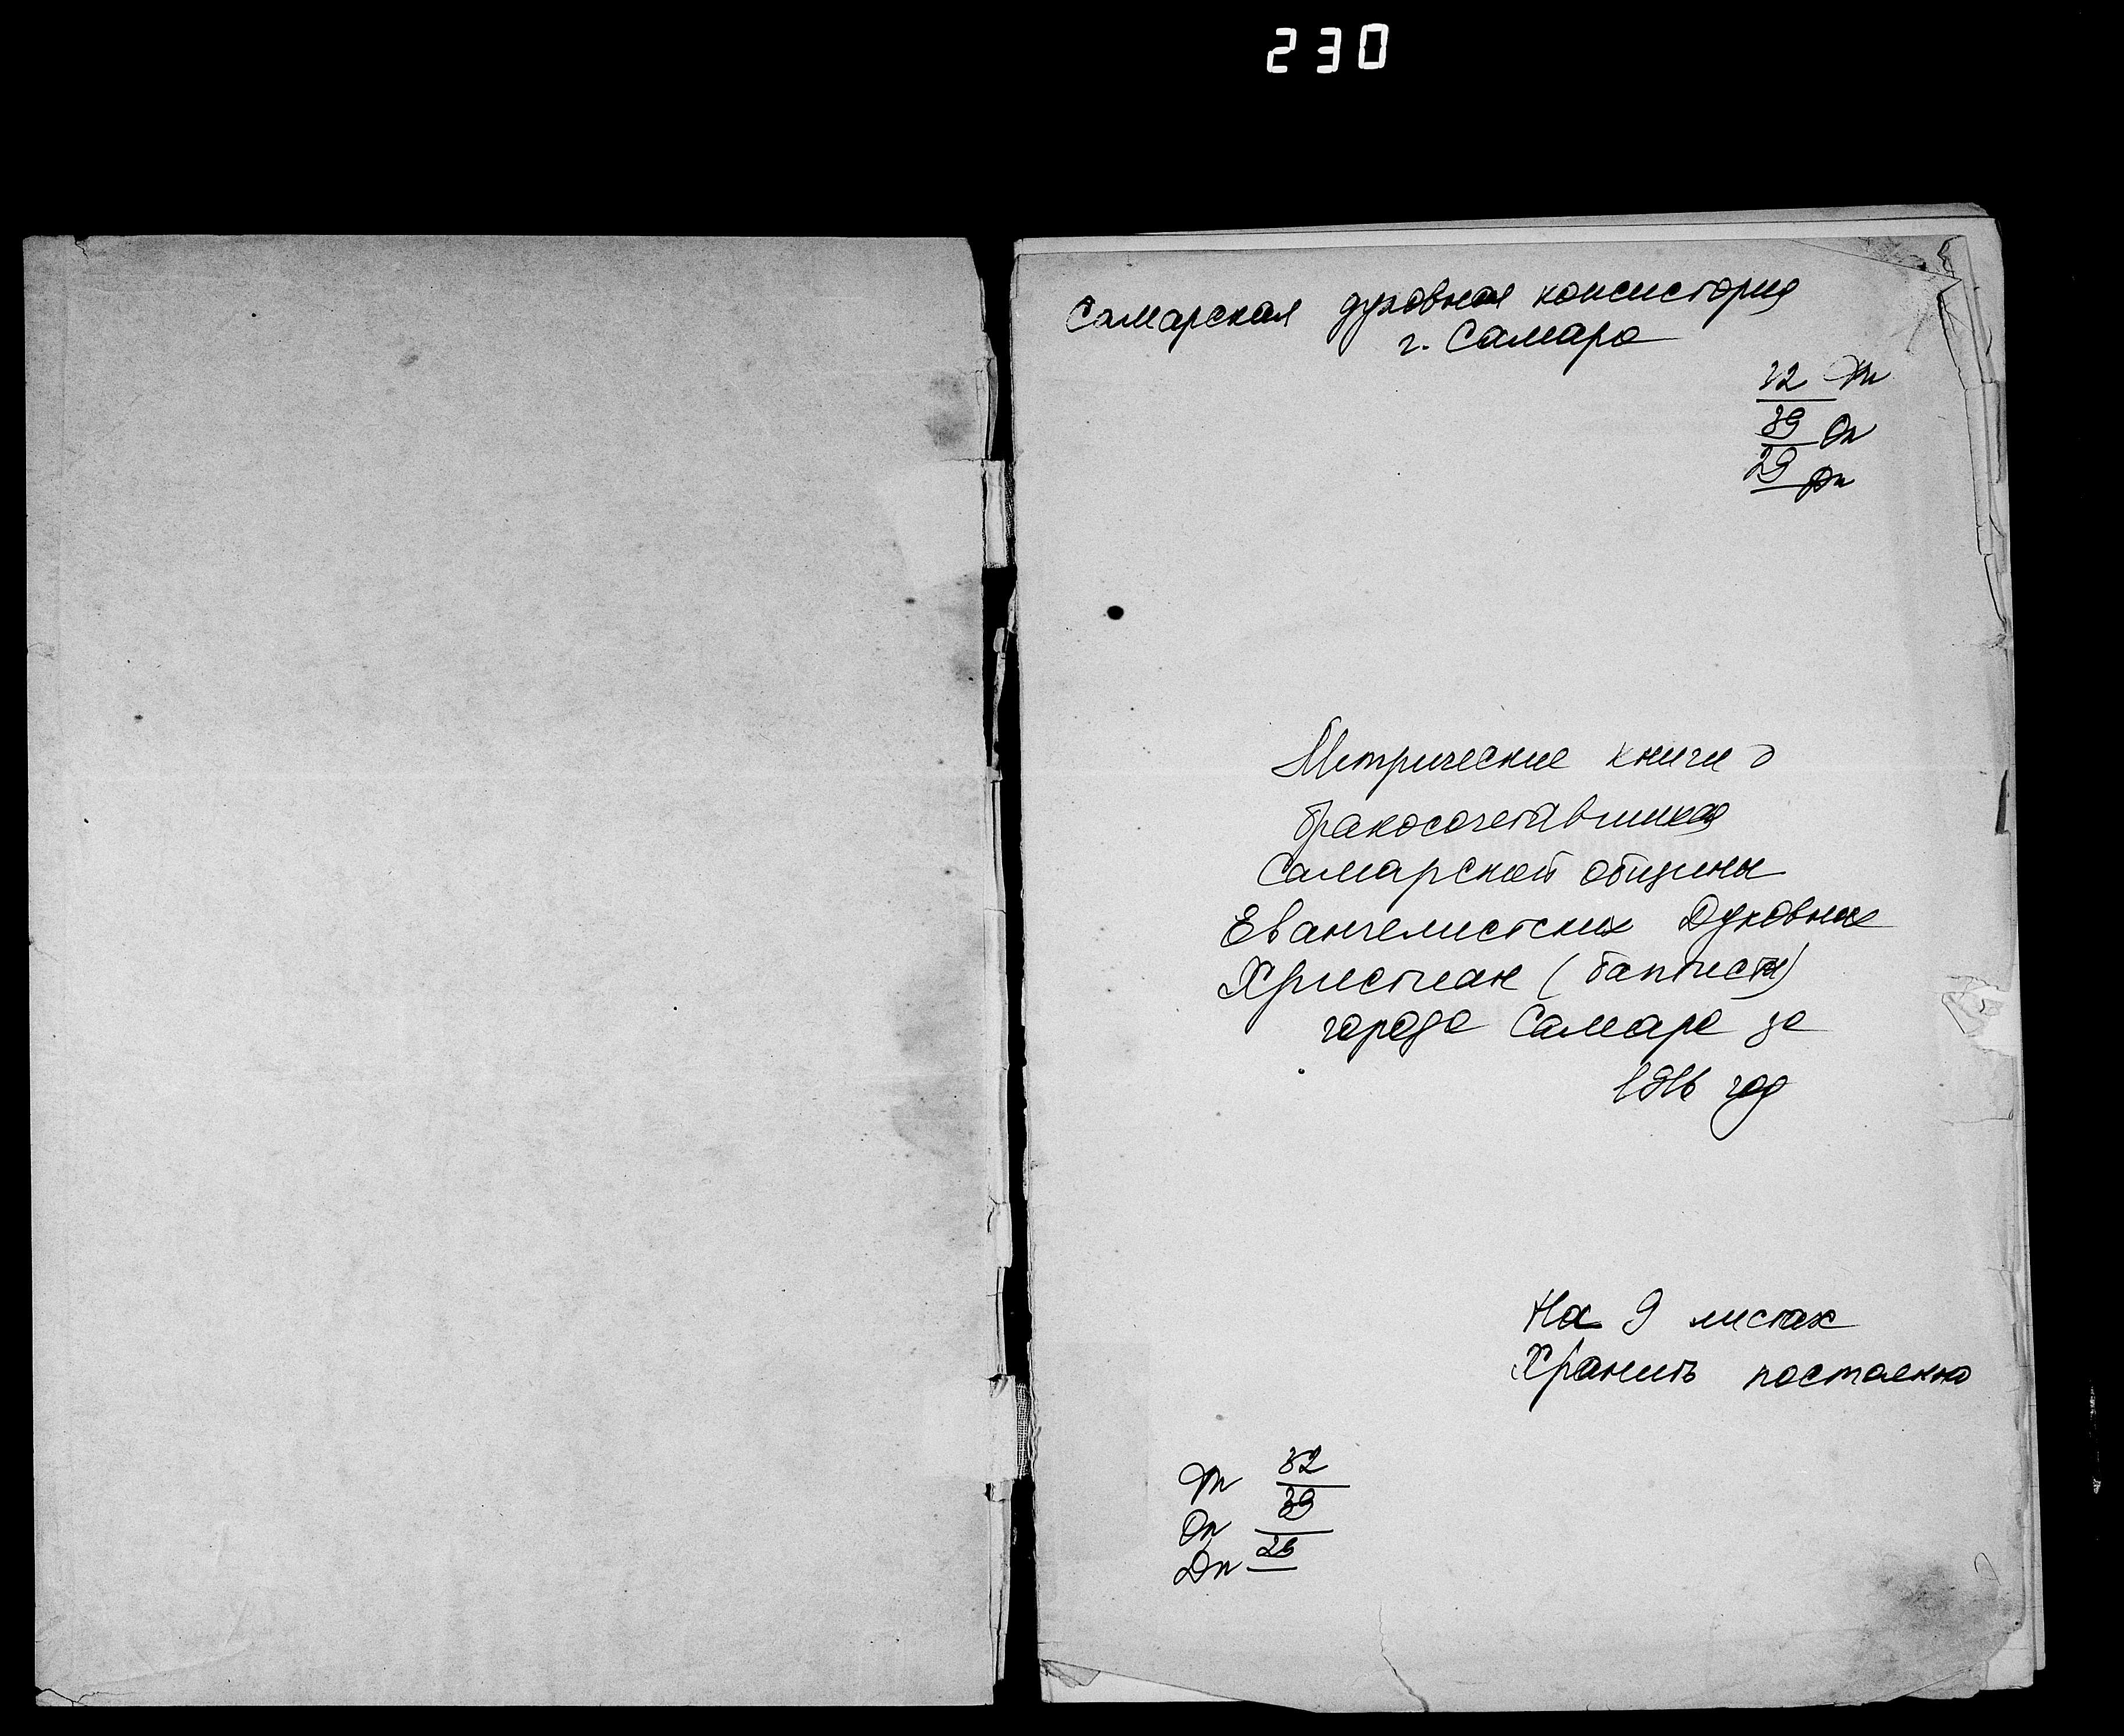 230
Самарская духовная консистория
г. Самара
32 Фп
39 Оп
29 Дп
Метрические книги о
бракосочетавшихся
Самарской общины
Евангелистских Духовных
Христиан (баптисты)
города Самара за
1916 год
На 9 листах
Хранить постоянно
Фп 32
Оп 39
Дп 29